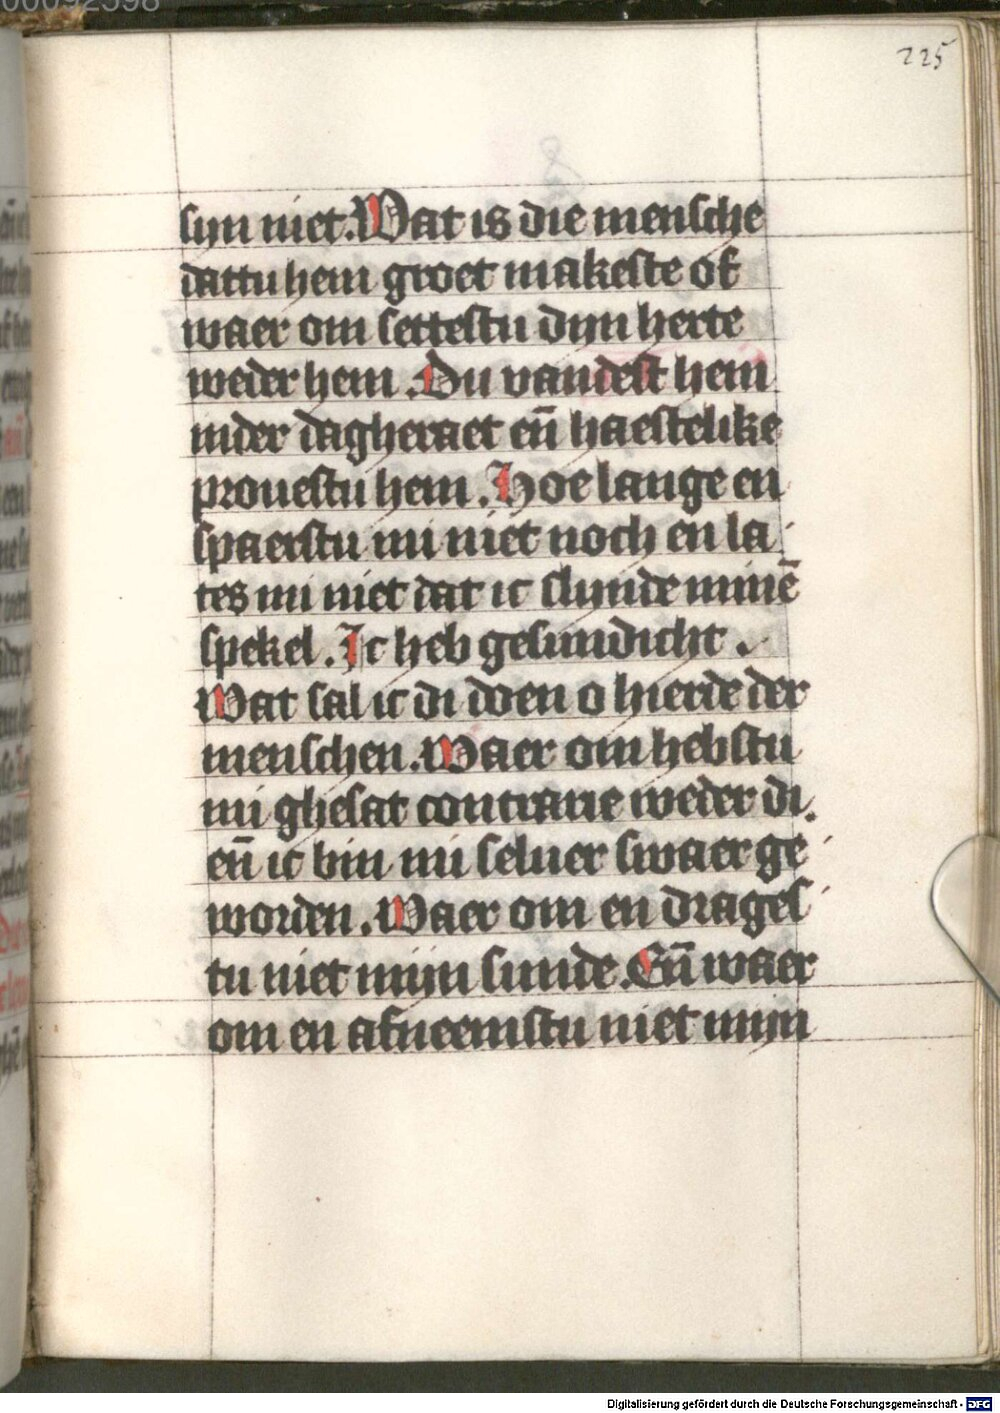 225
sijn niet. Wat is die mensche
dattu hem groet makeste of
waer om settestu dijn herte
weder hem. Du vandest hem
inder dagheraet eñ haestelike
prouestu hem. Hoe lange en
spaerstu mi niet noch en la
tes mi niet dat ic slynde minē
spekel. Ic heb gesundicht.
Wat sal ic di doen o hierde der
menschen. Waer om hebstu
mi ghesat contrarie weder di.
eñ ic bin mi seluer swaer ge
worden. Waer om en drages
tu niet mijn sunde. Eñ waer
om en afneemstu niet mijn
Digitalisierung gefördert durch die Deutsche Forschungsgemeinschaft - DFG